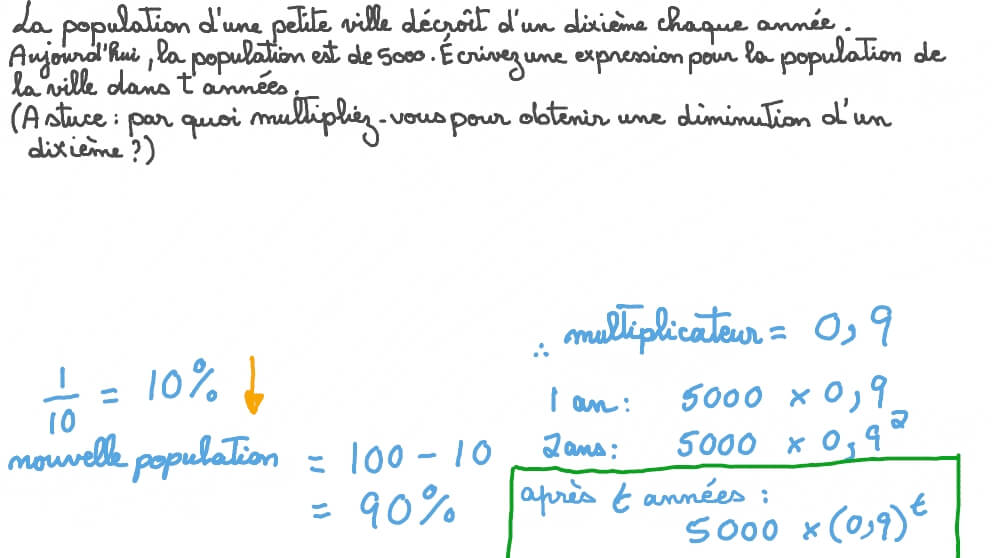 La population d'une petite ville décroît d'un dixième chaque année.
Aujourd'hui, la population est de 5000. Écrivez une expression pour la population de
la ville dans t années.
(Astuce : par quoi multipliez-vous pour obtenir une diminution d'un
dixième ?)
∴ multiplicateur = 0,9
1/10 = 10% ↓
1 an : 5000 × 0,9
nouvelle population = 100 - 10
2 ans : 5000 × 0,9²
= 90%
après t années :
5000 × (0,9)^t